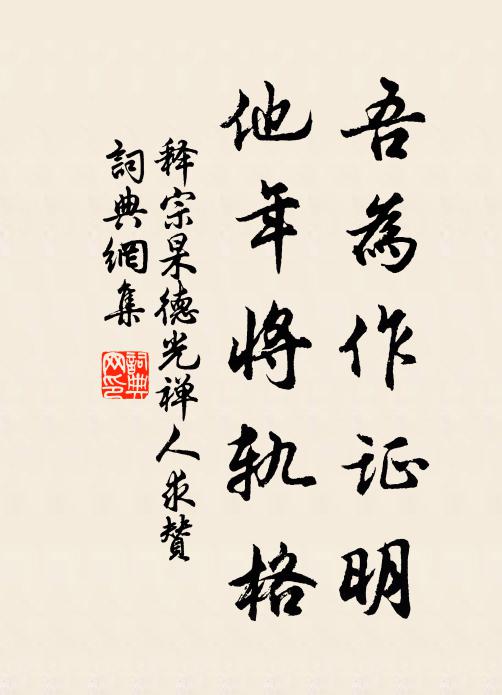 吾為作证明
他年将轨格
释宗杲德光禅人求贊
詞典網集
詞典網印